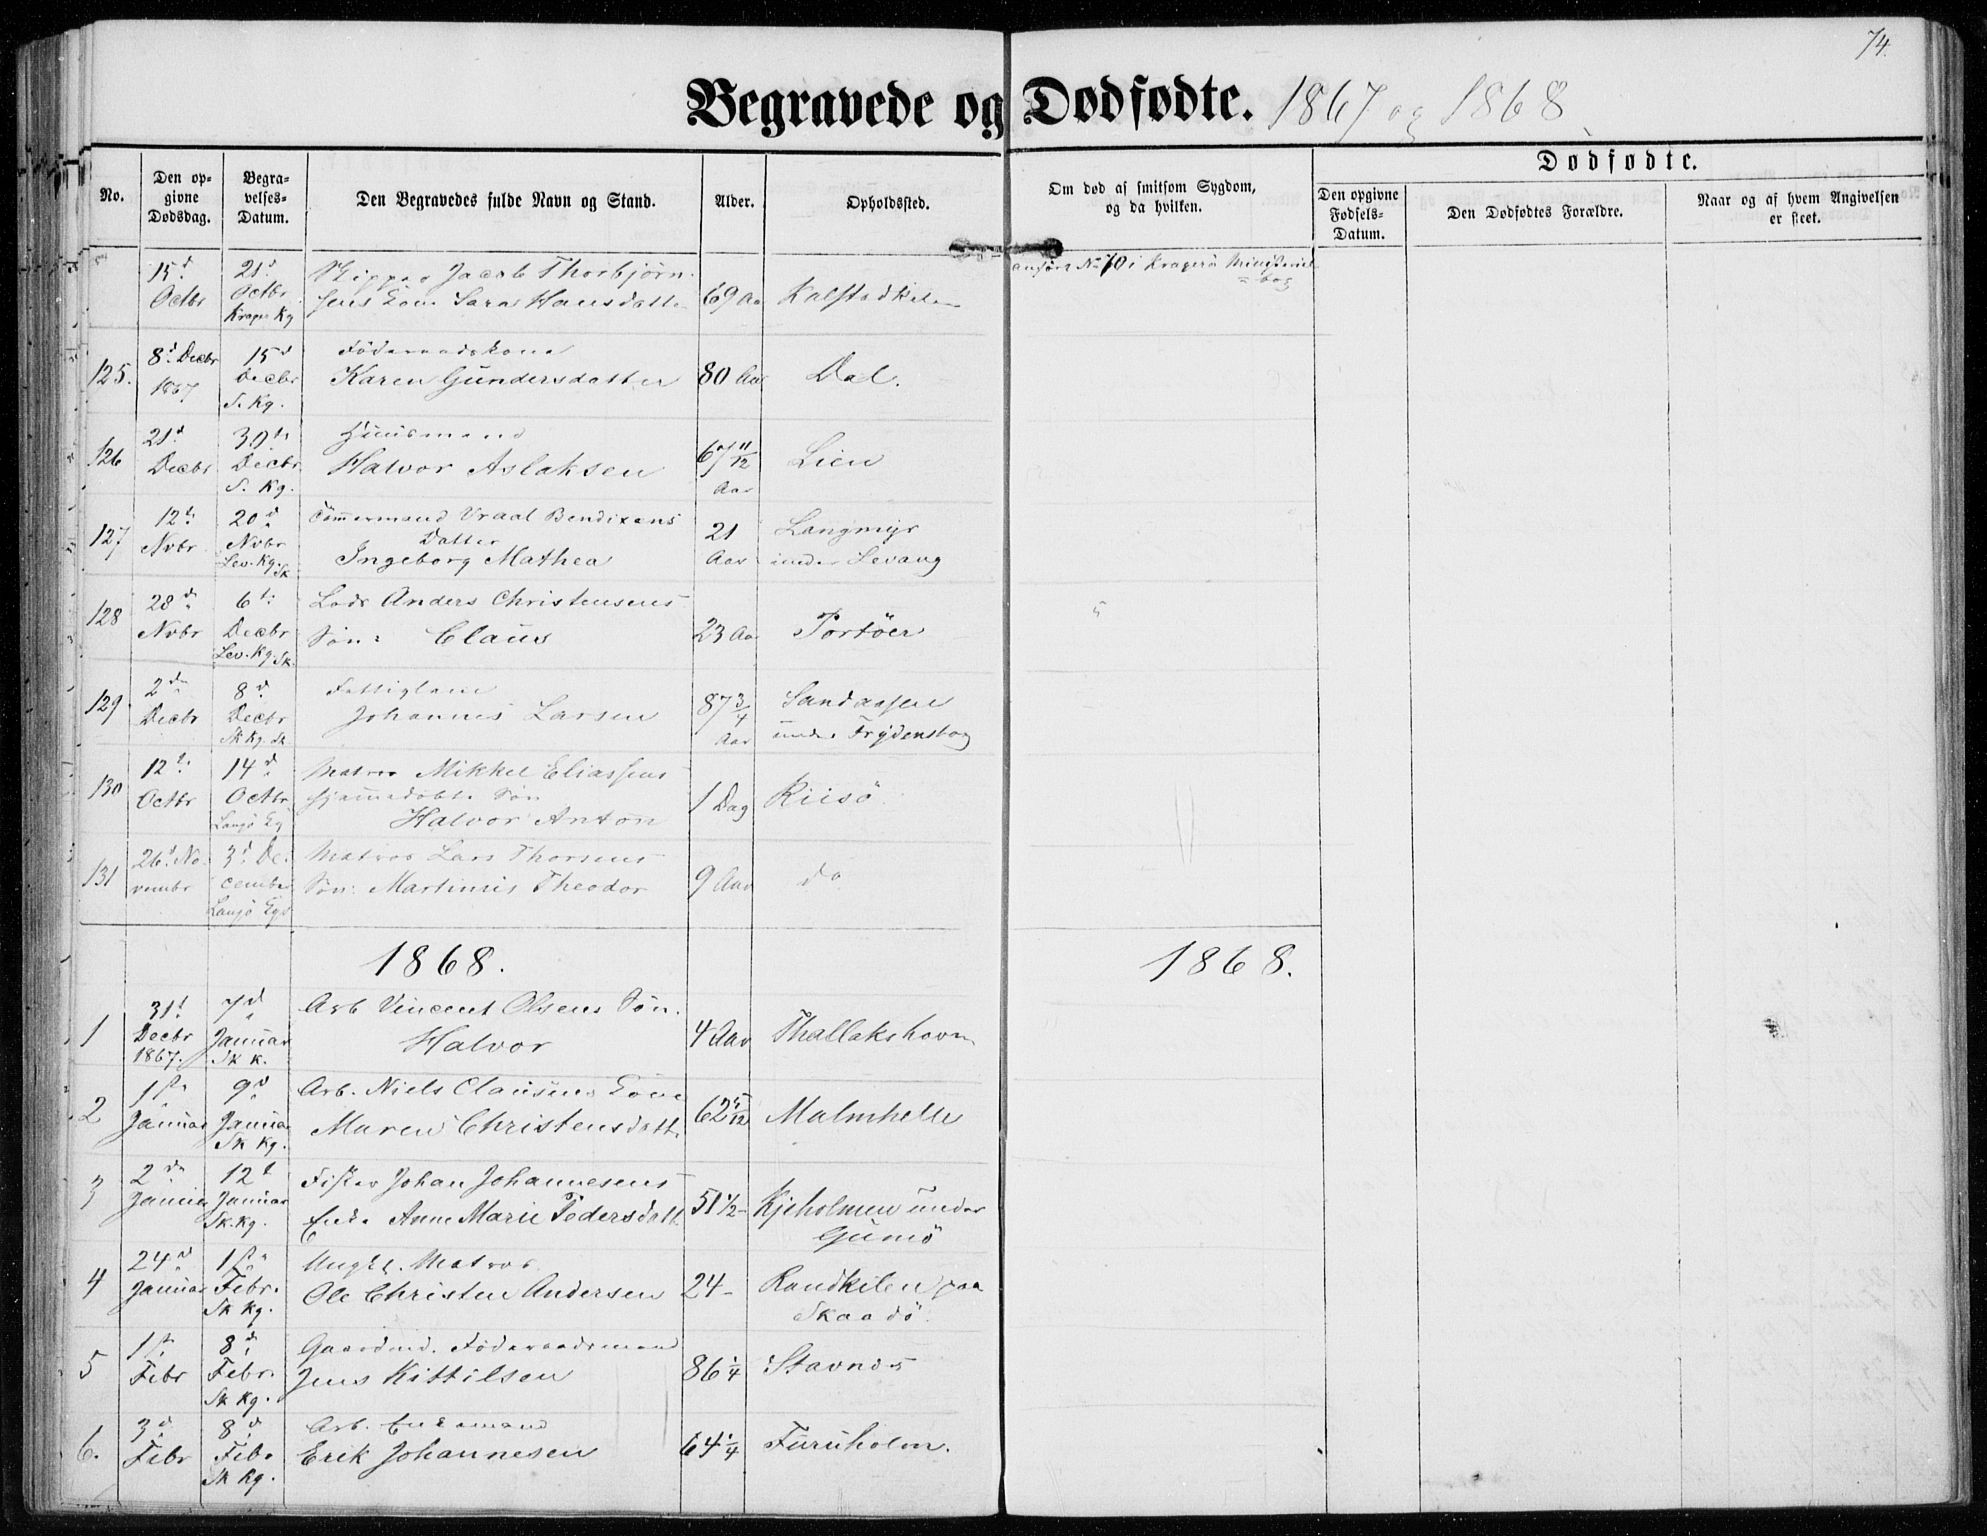 74.
Begravede og Dødfødte. 1867 og 1868
No.
Den op-
givne
Dødsdag.
Begra-
velses-
Datum.
Den Begravedes fulde Navn og Stand.
Alder.
Opholdssted.
Om død af smitsom Sygdom,
og da hvilken.
Dødfødte.
Den opgivne
Fødsels-
Datum.
Den Dødfødtes Forældre.
Naar og af hvem Angivelsen
er skeet.
15d 21d Skipper Jacob Thorbjørn-
Octbr Octbr sens Kone Sara Hansdatter 69 Aar Kalstadkilen
Kragerø Kg
anført No 70 i Kragerö Ministerial
= bog
125. 8d Decbr 15d Föderaadskone
1867 Decbr Karen Gundersdatter 80 Aar Dal.
S. Kg.
126 21d 30te Huusmand
Decbr Decbr Halvor Aslaksen 67 11/12 Lien
S. Kg. Aar
127 12te 20d Tömmermand Vraal Bendixens 21 Langmyr
Novbr Nvbr Datter
Lev. Kg. Sk Ingeborg Mathea Aar under Levang
128 28de 6te Lods Anders Christensens
Novbr Decbr Søn: Claus 23 Aar Portöer
Lev. Kg. Sk.
129 2den 8d Fattiglem 87 3/4 Sandaasen
Decbr Decbr Johannes Larsen Aar under Frydensborg
Sk Kg. Sk
130 12te 14d Matros Mikkel Eliassens
Octbr Octbr hjemmedøbte Søn 1 Dag Riisö
Langö Kg Halvor Anton
131 26d No- 3d De- Matros Lars Thorsens
vembr cember Søn: Martinius Theodor 9 Aar do
Langö Kg
1868.
1868.
1 31t 7d Arb Vincent Olsens Søn.
Decbr Januar Halvor 4 Aar Thallakshavn
1867. Sk K.
2 1ste 9d Arb. Niels Clausens Kone
Januar Januar Maren Christensdatt. 62 5/12 Malmhelle
Sk Kg.
3 2den 12t Fisker Johan Johannesens
Januar Januar Enke Anne Marie Pedersdatt. 51 1/2 - Kjeholmen under
Sk. Kg. Gumö
4 24d 1ste Ungkl. Matros
Januar Febr. Ole Christen Andersen 24 - Rundkilen paa
Sk Kg. Skaadö.
5 1ste 8de Gaardmd. Föderaadsmand
Febr Febr. Jens Kittilsen 86 1/4 Stavnes
Sk Kg.
6. 3d 8d Arb. Enkemand
Febr Febr Erik Johannesen 64 1/4 Furuholm.
Sk Kg.